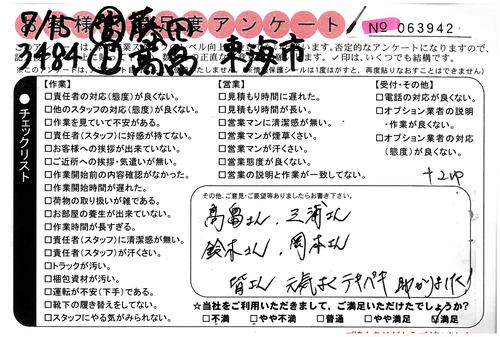 お客様満足度アンケート No 063942
8/15 藤田
2484 高畠 東海市
チェックリスト
【作業】
□責任者の対応(態度)が良くない。
□他のスタッフの対応(態度)が良くない。
□作業を見ていて不安がある。
□責任者(スタッフ)に好感が持てない。
□お客様への挨拶が出来ていない。
□ご近所への挨拶・気遣いが無い。
□作業開始前の内容確認がなかった。
□作業開始時間が遅れた。
□荷物の取り扱いが雑である。
□お部屋の養生が出来ていない。
□作業時間が長すぎる。
□責任者(スタッフ)に清潔感が無い。
□責任者(スタッフ)が汗くさい。
□トラックが汚い。
□梱包資材が汚い。
□運転が不安(下手)である。
□靴下の履き替えをしてない。
□スタッフにやる気がみられない。
【営業】
□見積もり時間に遅れた。
□見積もり時間が長い。
□営業マンに清潔感が無い。
□営業マンが煙草くさい。
□営業マンが汗くさい。
□営業態度が良くない。
□営業の説明と作業が一致してない。
【受付・その他】
□電話の対応が良くない。
□オプション業者の説明
・作業が良くない。
□オプション業者の対応
(態度)が良くない。
その他、ご意見・ご要望等ありましたらお書き下さい。
高畠さん、三浦さん
鈴木さん、岡本さん
皆さん 元気よくテキパキ 助かりました!
☆当社をご利用いただきまして、ご満足いただけたでしょうか?
□不満 □やや不満 □普通 □やや満足 ☑満足